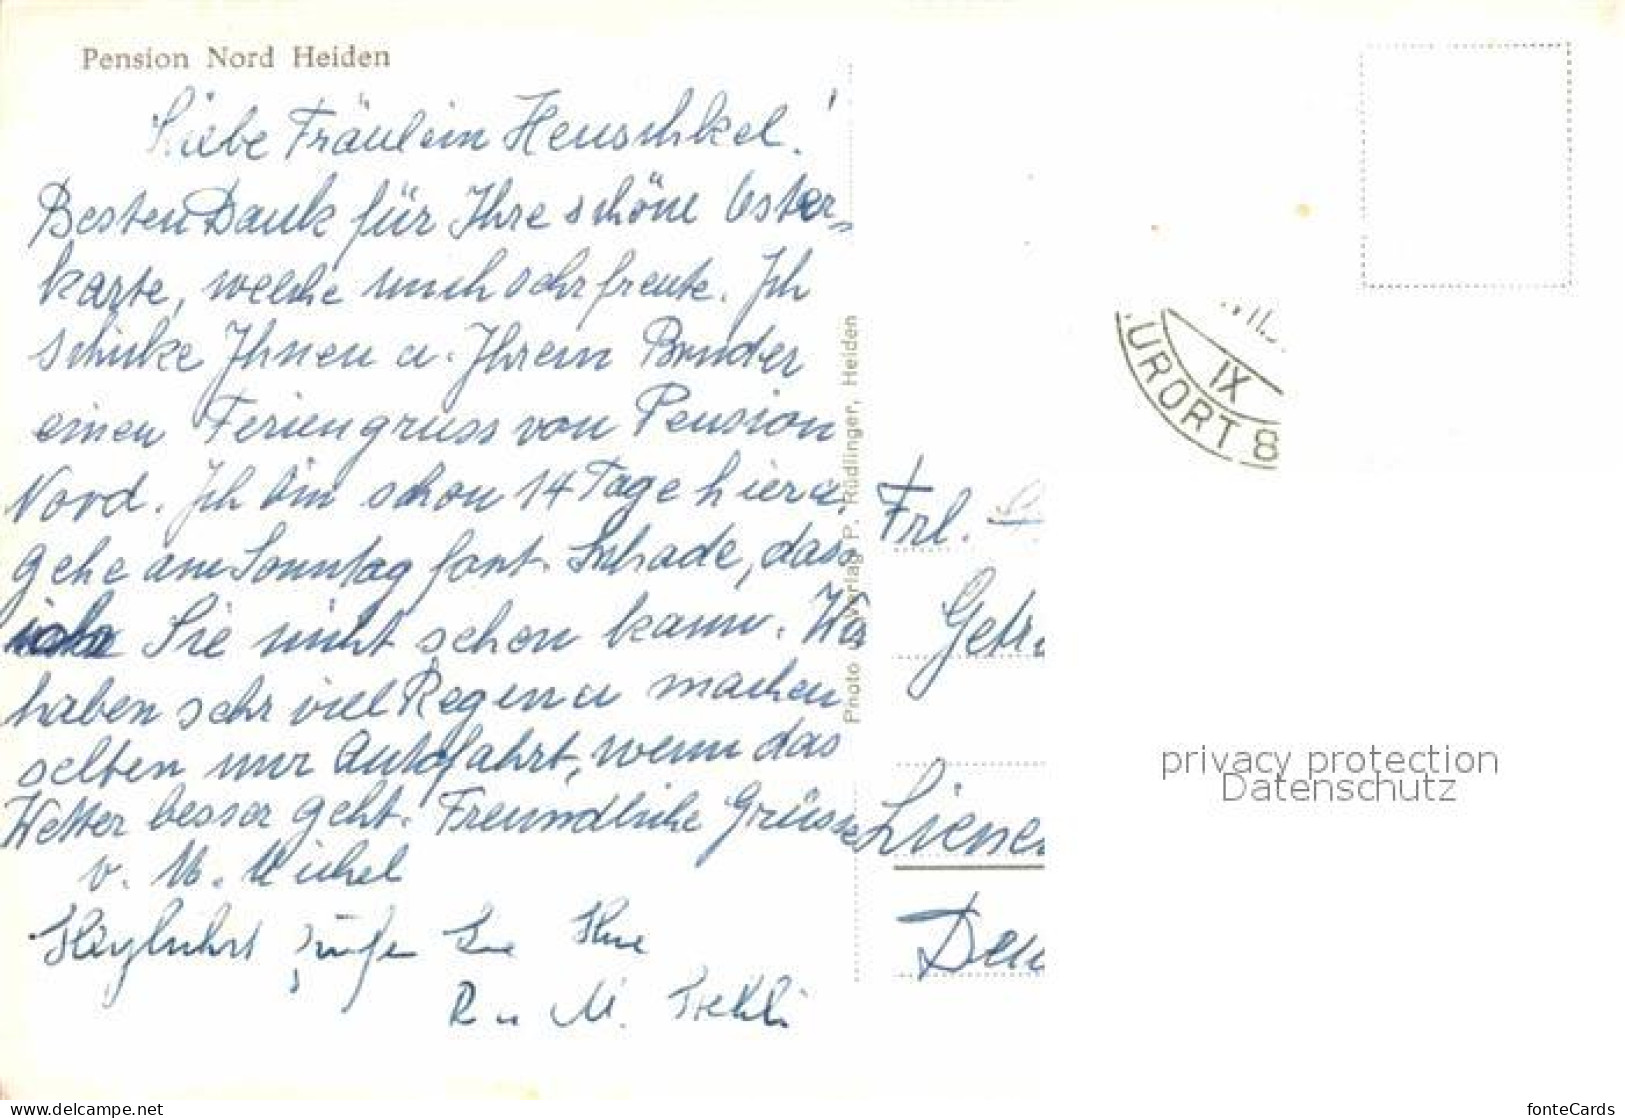 Pension Nord Heiden
Liebe Fräulein Heuschkel!
Besten Dank für Ihre schöne Oster-
karte, welche mich sehr freute. Ich
schicke Ihnen u. Ihrem Bruder
einen Feriengruss von Pension
Nord. Ich bin schon 14 Tage hier u.
gehe am Sonntag fort. Schade, dass
Sie nicht sehen kann. Wir
haben sehr viel Regen u machen
selten nur Autofahrt, wenn das
Wetter besser geht. Freundliche Grüsse
v. M. Michel
Sie Ihre
R u M.
Photo u. Verlag P. Rüdlinger, Heiden
URORT 8
IX
Frl.
Liene
privacy protection
Datenschutz
delcampe.net
fonteCards